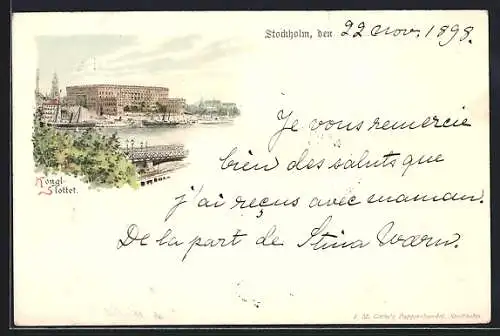 Stockholm, den 22 nov. 1898.
Je vous remercie
bien des saluts que
j'ai reçus avec maman.
De la part de Stina Warn.
Kongl-
Slottet.